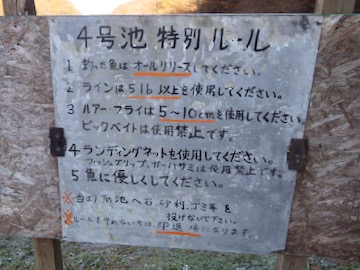 4号池 特別ルール
1 釣った魚はオールリリースしてください。
2 ラインは5lb以上を使用してください。
3 ルアー・フライは5~10cmを使用してください。
ビックベイトは使用禁止です。
4 ランディングネットを使用してください。
フィッシュグリップ、ガーハサミは使用禁止です。
5 魚に優しくしてください。
※当エリアの池へ石、砂利、ゴミ等を
投げないで下さい。
※ルールを守れない方は、即退場になります。